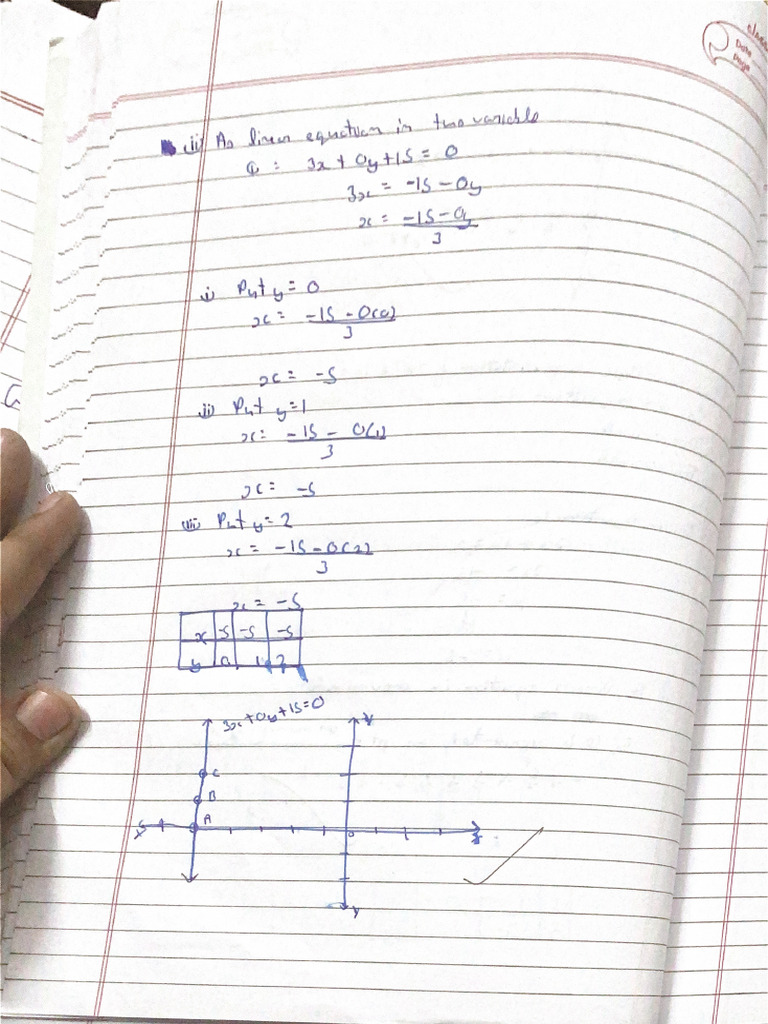 Date
Page
ii) As linear equation in two variable
3x + 0y + 15 = 0
3x = -15 - 0y
x = -15 - 0y
3
i) Put y = 0
x = -15 - 0(0)
3
x = -5
ii) Put y = 1
x = -15 - 0(1)
3
x = -5
iii) Put y = 2
x = -15 - 0(2)
3
x = -5
x -5 -5 -5
y 0 1 2
3x + 0y + 15 = 0
Y
C
B
A
X' 0 X
Y'